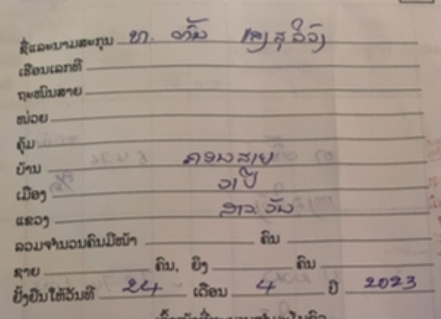 ຊື່ແລະນາມສະກຸນ ທ. ຕັນ
ເຮືອນເລກທີ
ຖະໜົນສາຍ
ໜ່ວຍ
ຄຸ້ມ
ບ້ານ ຄອນສາຍ
ເມືອງ ວາປີ
ແຂວງ ສາລະວັນ
ລວມຈຳນວນຄົນມີໜ້າ ຄົນ
ຊາຍ ຄົນ, ຍິງ ຄົນ
ຢັ້ງຢືນໃຫ້ວັນທີ 24 ເດືອນ 4 ປີ 2023